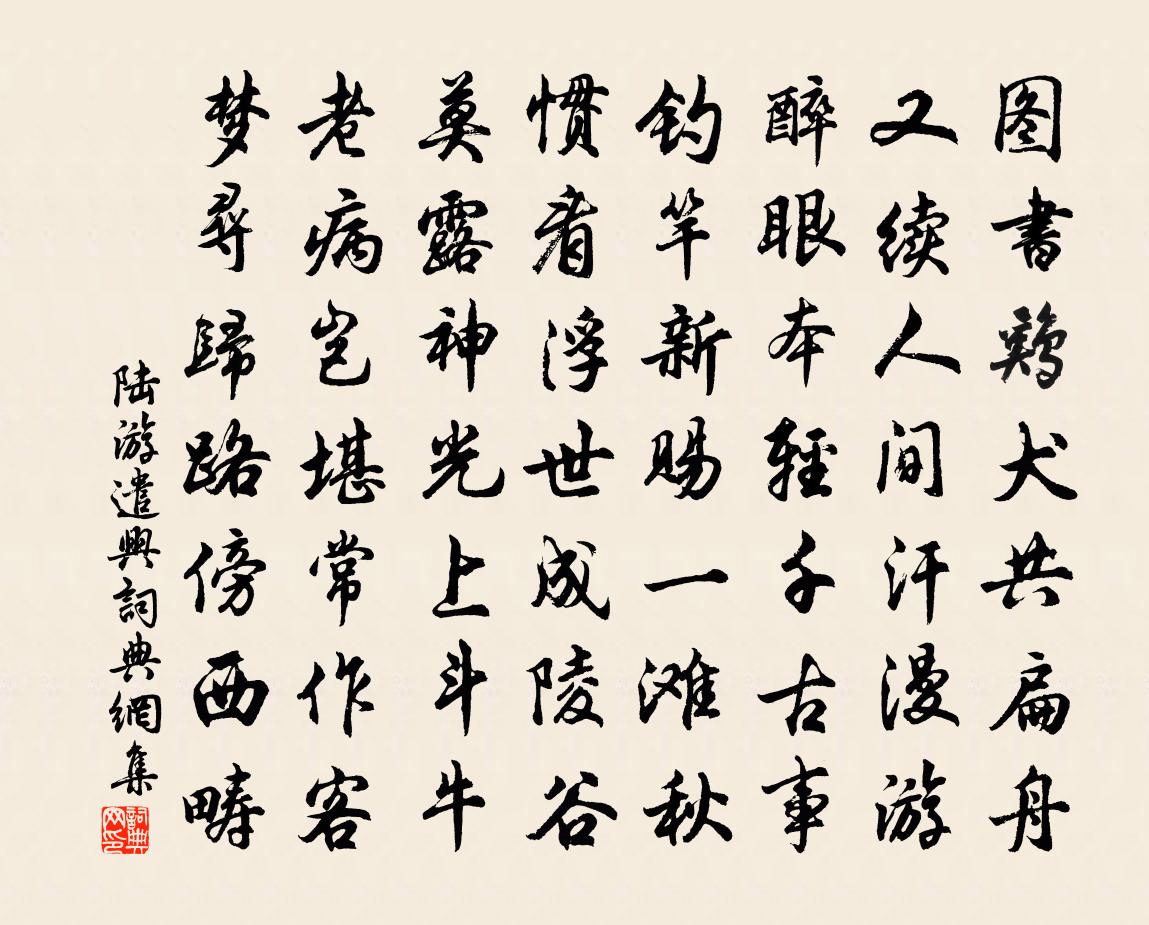 图書鷄犬共扁舟
又续人间汗漫游
醉眼本輕千古事
钓竿新赐一滩秋
慣看浮世成陵谷
莫露神光上斗牛
老病岂堪常作客
梦尋歸路傍西畴
陆游遣興詞典網集
詞典网印